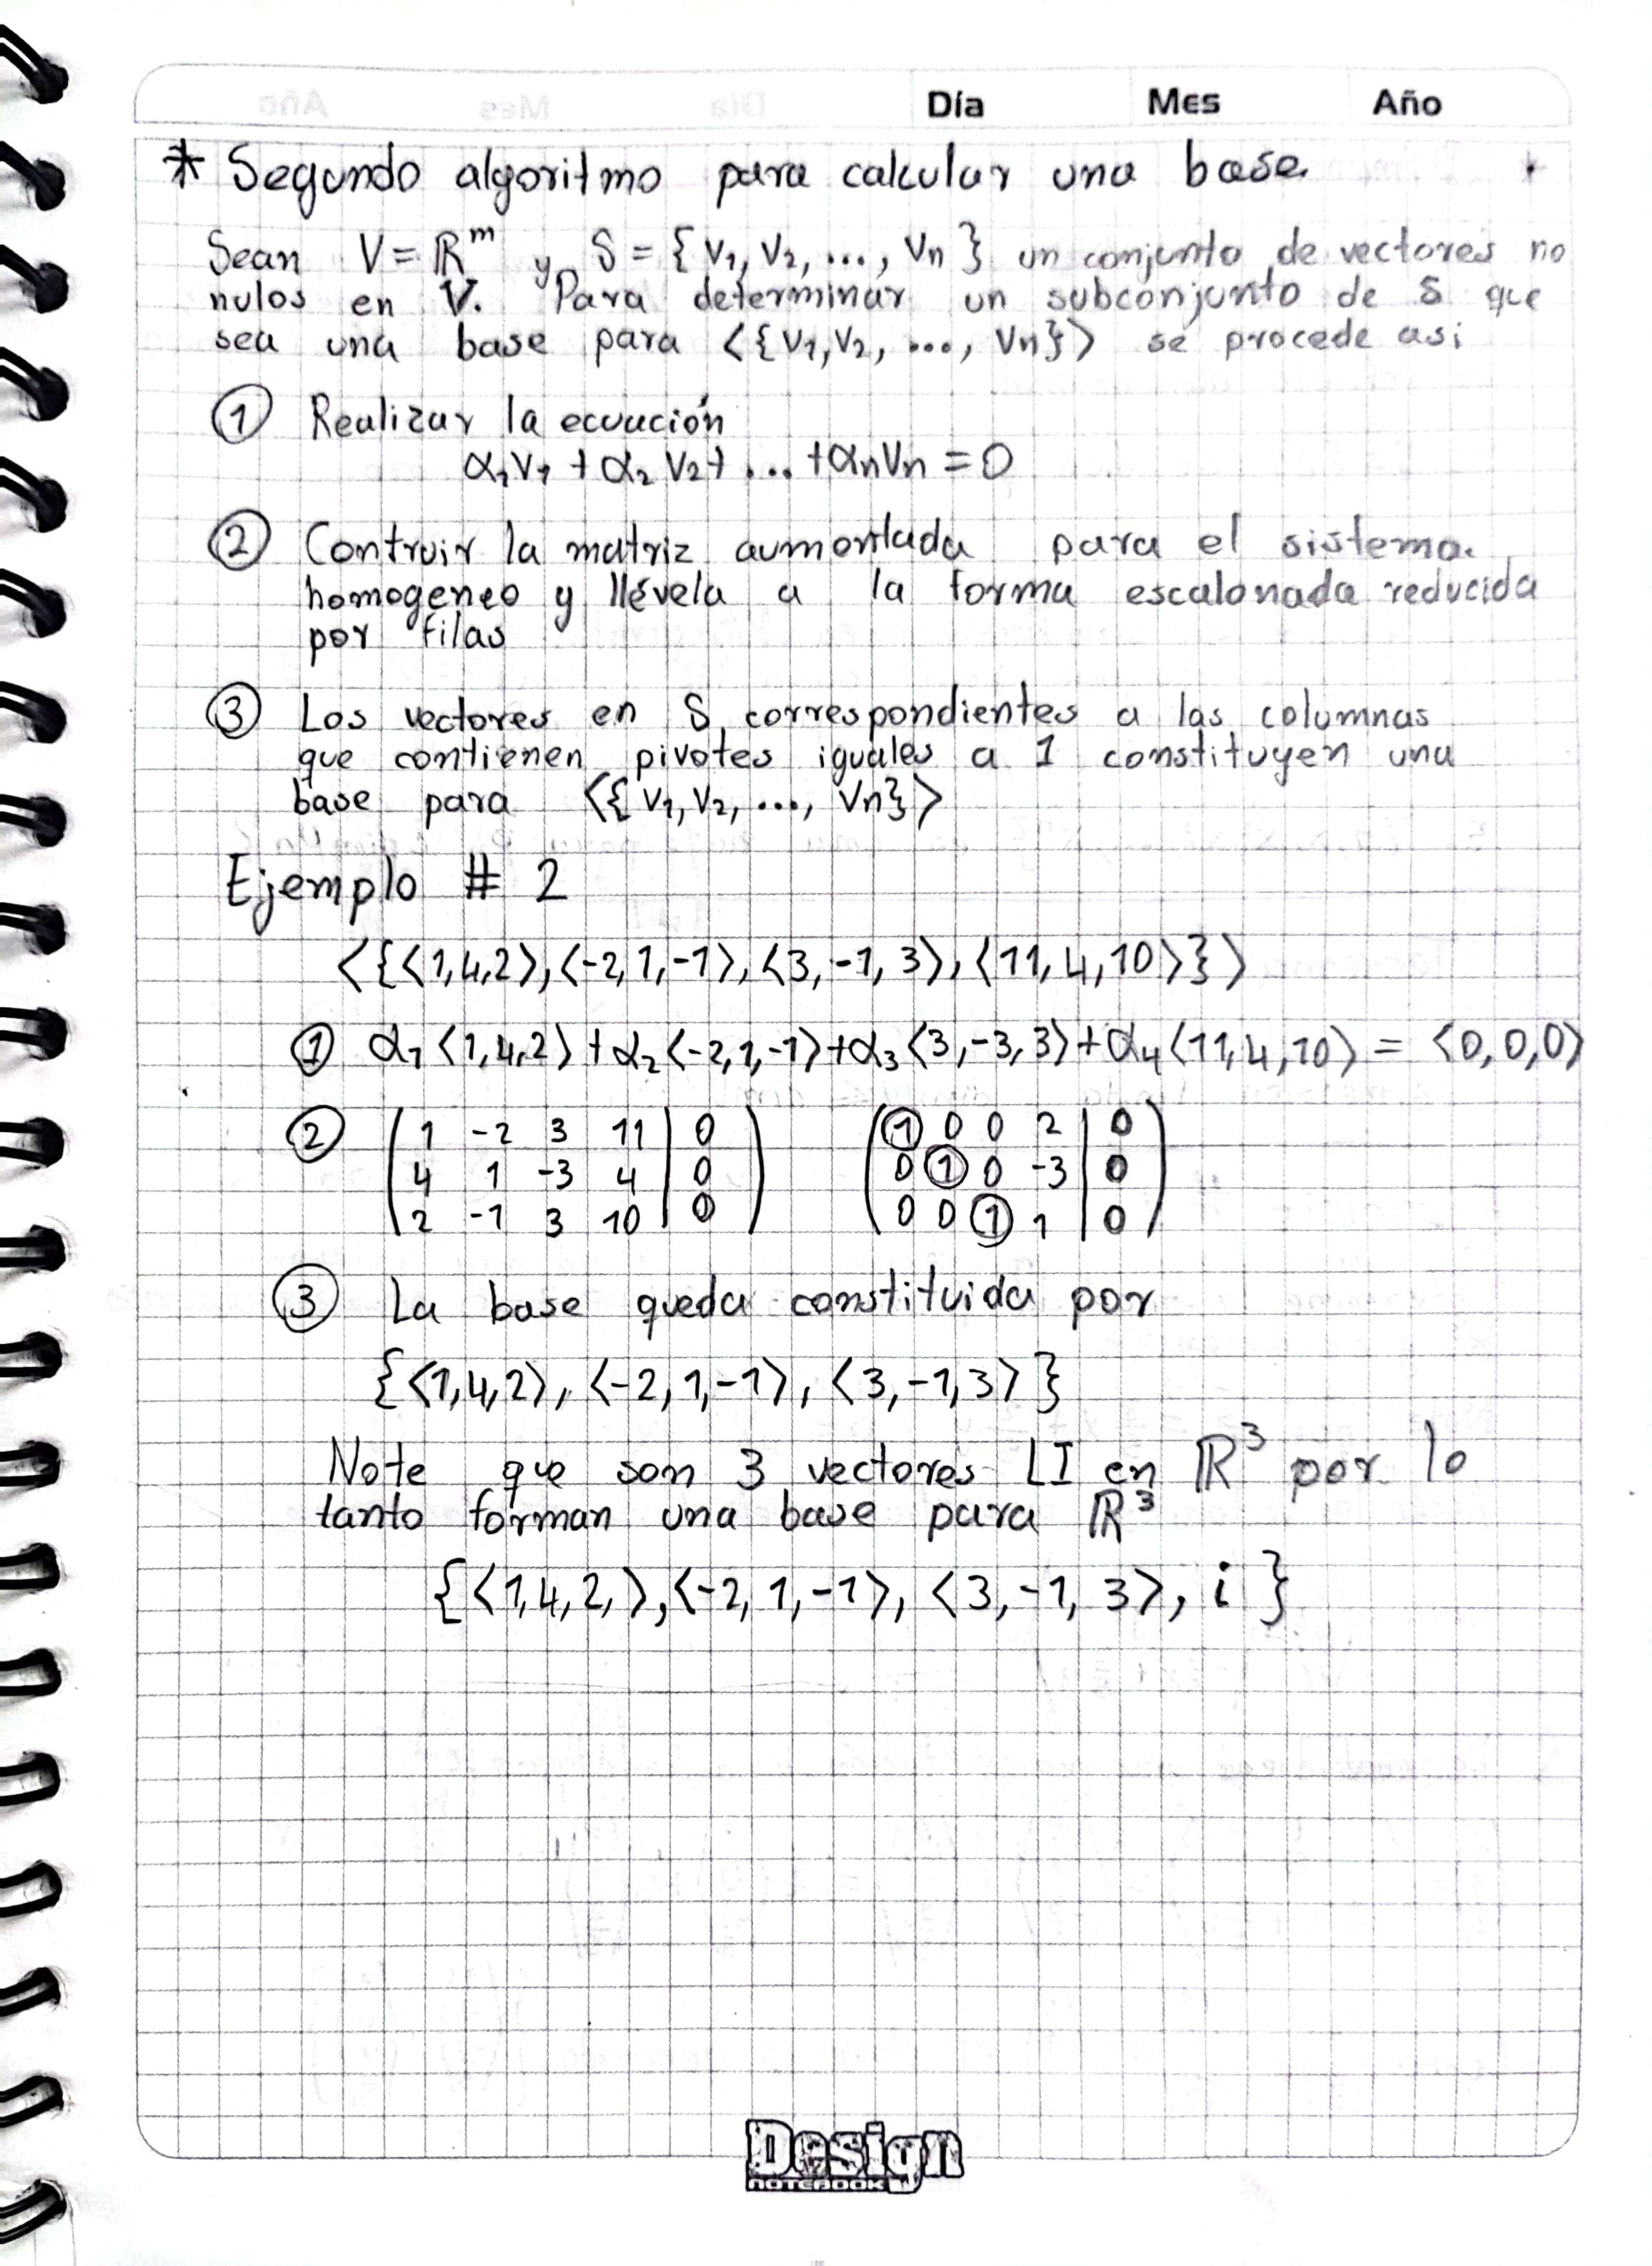 Día Mes Año
* Segundo algoritmo para calcular una base.
Sean V = ℝᵐ y S = {v₁, v₂, ..., vn} un conjunto de vectores no
nulos en V. Para determinar un subconjunto de S que
sea una base para ⟨{v₁, v₂, ..., vn}⟩ se procede asi
① Realizar la ecuación
α₁v₁ + α₂v₂ + ... + αnvn = 0
② Contruir la matriz aumentada para el sistema
homogeneo y llévela a la forma escalonada reducida
por filas
③ Los vectores en S correspondientes a las columnas
que contienen pivotes iguales a 1 constituyen una
base para ⟨{v₁, v₂, ..., vn}⟩
Ejemplo # 2
⟨{⟨1,4,2⟩,⟨-2,1,-1⟩,⟨3,-1,3⟩,⟨11,4,10⟩}⟩
① α₁⟨1,4,2⟩+α₂⟨-2,1,-1⟩+α₃⟨3,-3,3⟩+α₄⟨11,4,10⟩ = ⟨0,0,0⟩
② ( 1 -2 3 11 | 0 ) ( ① 0 0 2 | 0 )
( 4 1 -3 4 | 0 ) ( 0 ① 0 -3 | 0 )
( 2 -1 3 10 | 0 ) ( 0 0 ① 1 | 0 )
③ La base queda constituida por
{⟨1,4,2⟩, ⟨-2,1,-1⟩, ⟨3,-1,3⟩}
Note que son 3 vectores LI en ℝ³ por lo
tanto forman una base para ℝ³
{⟨1,4,2,⟩,⟨-2,1,-1⟩, ⟨3,-1,3⟩, i }
Design
NOTEBOOK